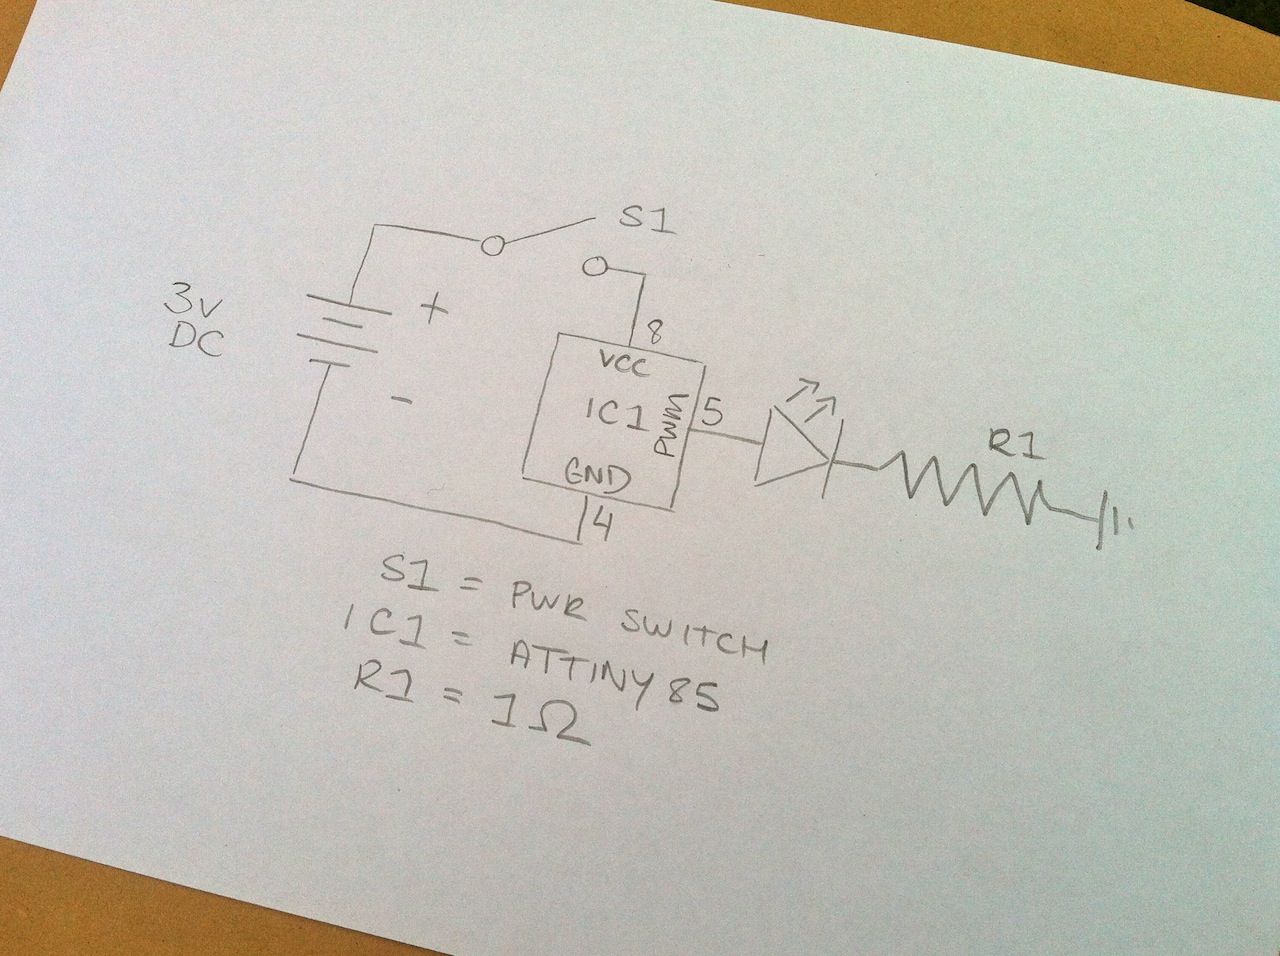 S1
3v
DC
+
-
8
VCC
IC1
PWM
5
GND
4
R1
S1 = PWR SWITCH
IC1 = ATTINY85
R1 = 1Ω